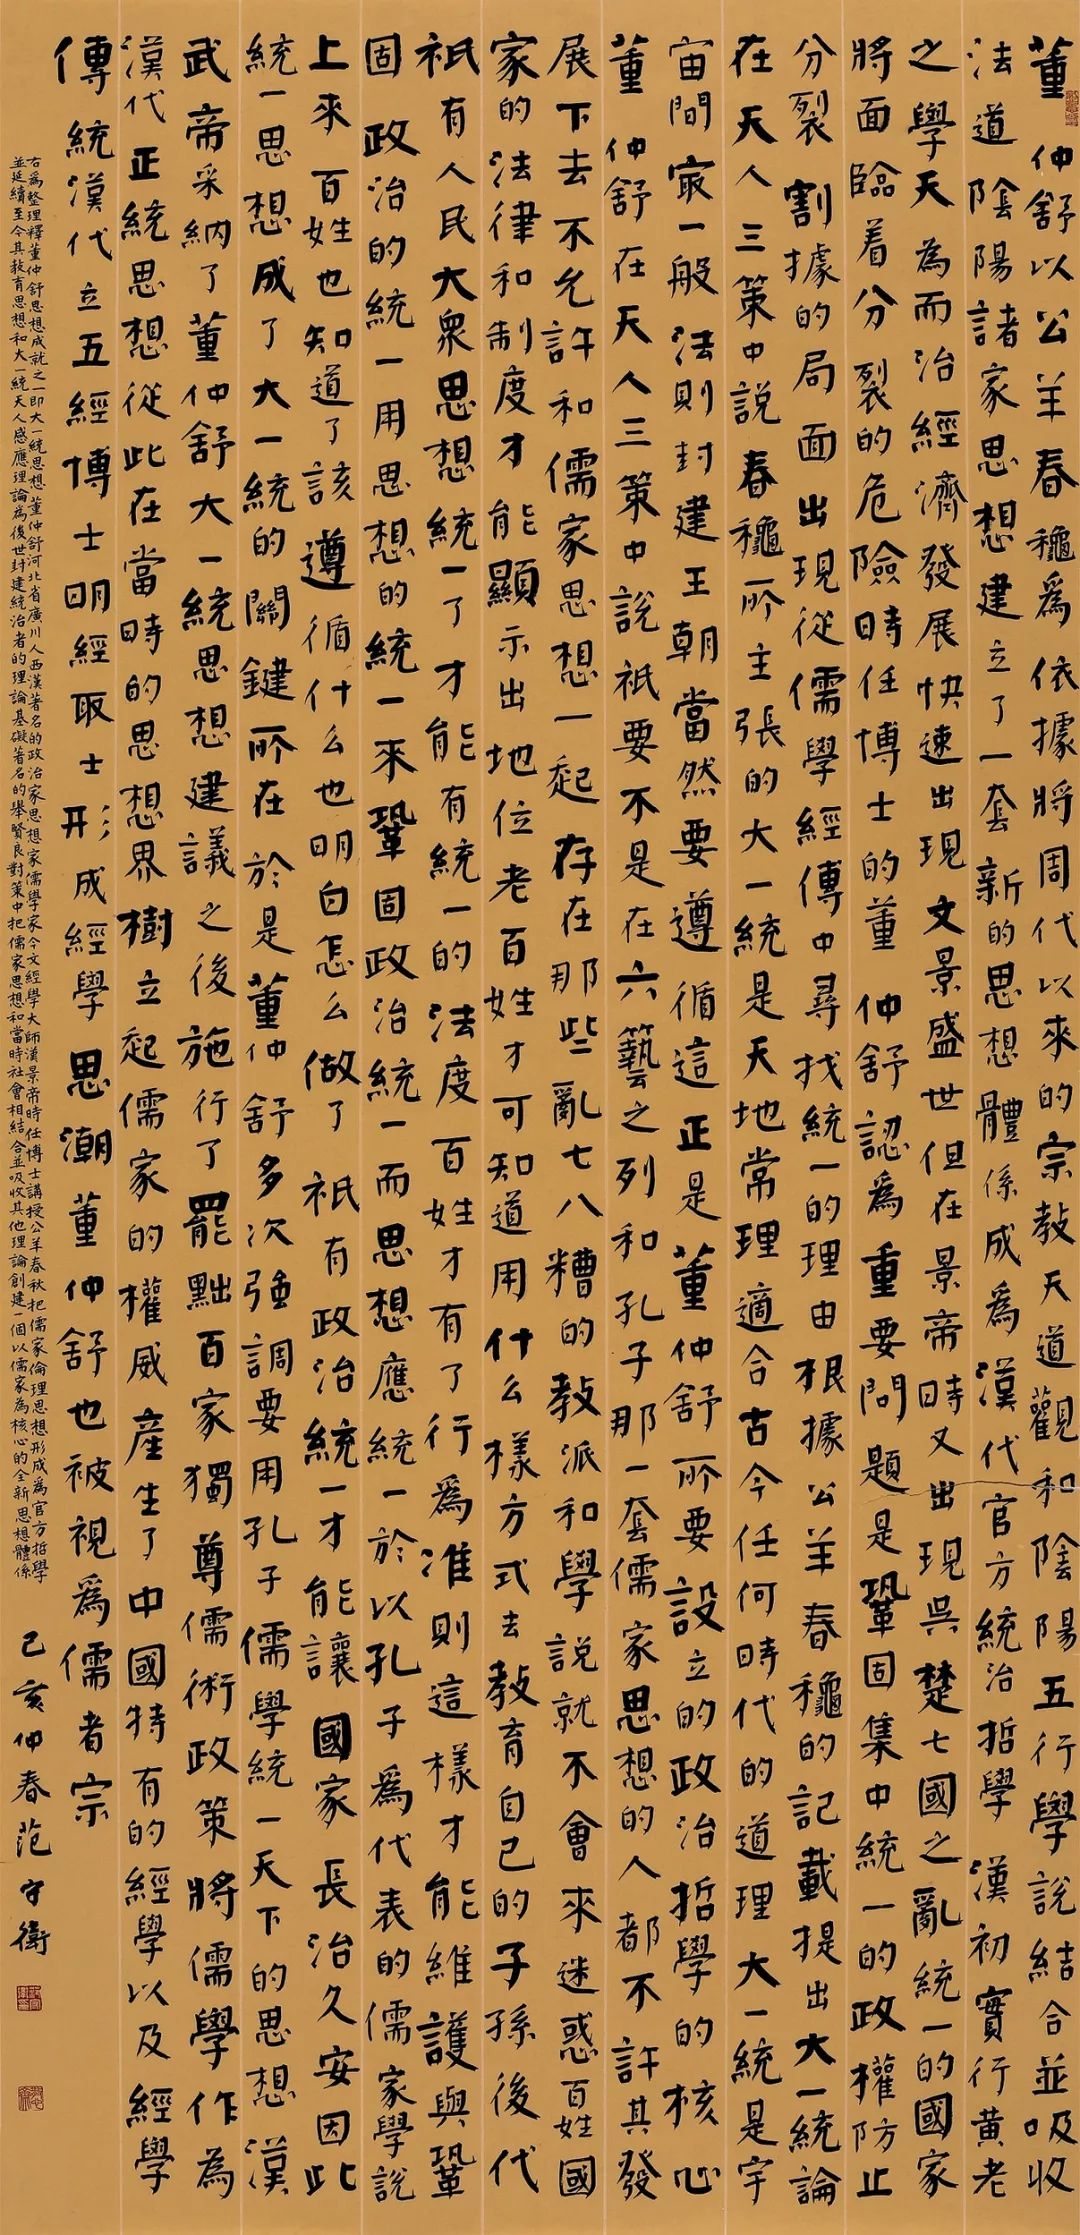 董仲舒以公羊春龝爲依據將周代以來的宗教天道觀和陰陽五行學說結合並吸收
法道陰陽諸家思想建立了一套新的思想體係成爲漢代官方統治哲學漢初實行黄老
之學天為而治經濟發展快速出現文景盛世但在景帝时又出現呉楚七國之亂統一的國家
將面臨着分裂的危險時任博士的董仲舒認爲重要問題是鞏固集中統一的政權防止
分裂割據的局面出現從儒學經傳中尋找統一的理由根據公羊春龝的記載提出大一統論
在天人三策中說春龝所主張的大一統是天地常理適合古今任何時代的道理大一統是宇
宙間㝡一般法則封建王朝當然要遵循這正是董仲舒所要設立的政治哲學的核心
董仲舒在天人三策中説祇要不是在六藝之列和孔子那一套儒家思想的人都不許其發
展下去不允許和儒家思想一起存在那些亂七八糟的教派和學説就不會來迷惑百姓國
家的法律和制度才能顯示出地位老百姓才可知道用什么樣方式去教育自己的子孫後代
祇有人民大衆思想統一了才能有統一的法度百姓才有了行爲准則這樣才能維護與鞏
固政治的統一用思想的統一來鞏固政治統一而思想應統一於以孔子爲代表的儒家學説
上來百姓也知道了該遵循什么也明白怎么做了祇有政治統一才能讓國家長治久安因此
統一思想成了大一統的關鍵所在於是董仲舒多次强調要用孔子儒學統一天下的思想漢
武帝采納了董仲舒大一統思想建議之後施行了罷黜百家獨尊儒術政策將儒學作為
漢代正統思想從此在當時的思想界樹立起儒家的權威產生了中國特有的經學以及經學
傳統漢代立五經博士明經取士形成經學思潮董仲舒也被視爲儒者宗
右爲整理釋董仲舒思想成就之一即大一統思想董仲舒河北省廣川人西漢著名的政治家思想家儒學家今文經學大師漢景帝時任博士講授公羊春秋把儒家倫理思想形成爲官方哲學
並延續至今其教育思想和大一統天人感應理論為後世封建統治者的理論基礎著名的舉賢良對策中把儒家思想和當時社會相結合並吸收其他理論創建一個以儒家為核心的全新思想體係
己亥仲春范守衛